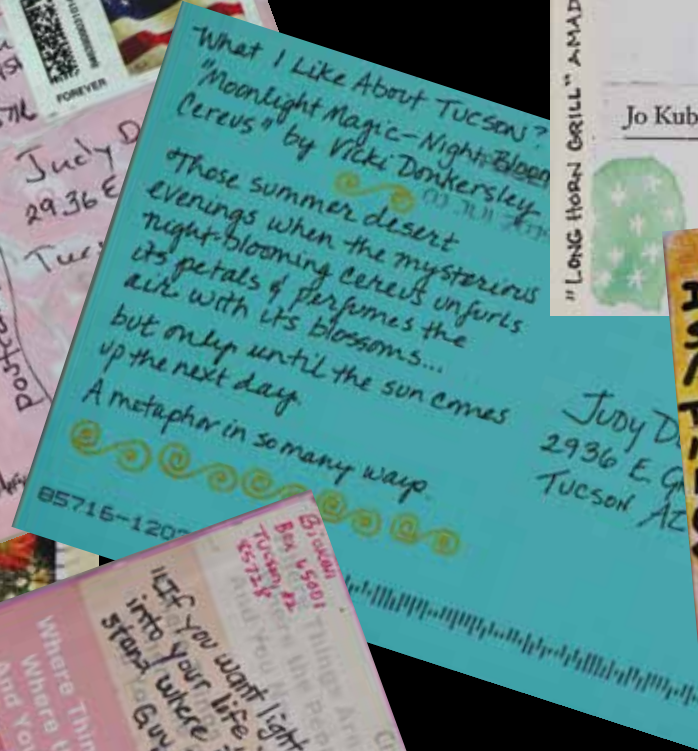 FOREVER
Judy D
2936 E
What I Like About Tucson?
"Moonlight Magic-Night-Bloom
Cereus" by Vicki Donkersley
Those summer desert
evenings when the mysterious
night-blooming cereus unfurls
its petals & perfumes the
air with its blossoms...
but only until the sun comes
up the next day.
A metaphor in so many ways.
85716-120
Judy D
2936 E G
TUCSON AZ
"LONG HORN GRILL" AMAD
Jo Kub
Box 65001
Tucson, Az
85728
"If you want light
into your life
stand where i
Guy
Where Thin
Where t
And You